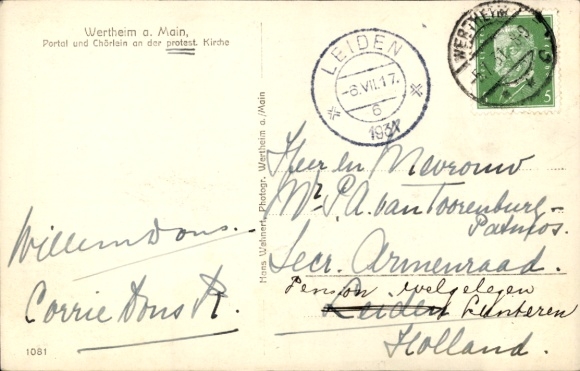 Wertheim a. Main,
Portal und Chörlein an der protest. Kirche
LEIDEN
-6.VII.17.
6
1931
WERTHEIM
5
Hans Wehnert, Photogr. Wertheim a./Main
Heer en Mevrouw
Mr. P.A. van Toorenburg-
Patmos.
Secr. Armenraad.
Pension Welgelegen
Leiden Lunteren
Holland.
Willem Dons.
Corrie Dons R.
1081